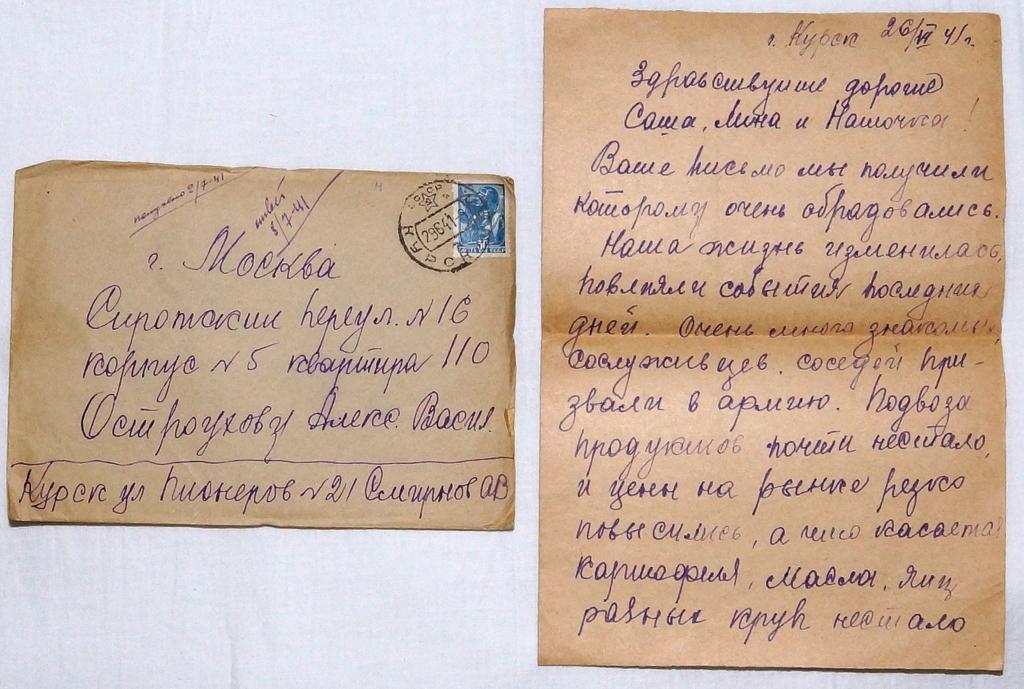 получено 2/7-41
ответ
8/7-41
КУРСК
29641
г. Москва
Сиротский переул. №16
корпус №5 квартира 110
Остроухову Алекс. Васил.
Курск ул Пионеров №21 Смирнов АВ
г. Курск 26/VI 41г.
Здравствуйте дорогие
Саша, Лина и Наточка!
Ваше письмо мы получили
которому очень обрадовались.
Наша жизнь изменилась,
повлияли события последних
дней. Очень много знакомых,
сослуживцев, соседей при-
звали в армию. Подвоза
продуктов почти нестало,
и цены на рынке резко
повысились, а что касается
картофеля, масла, яиц
разных круп нестало